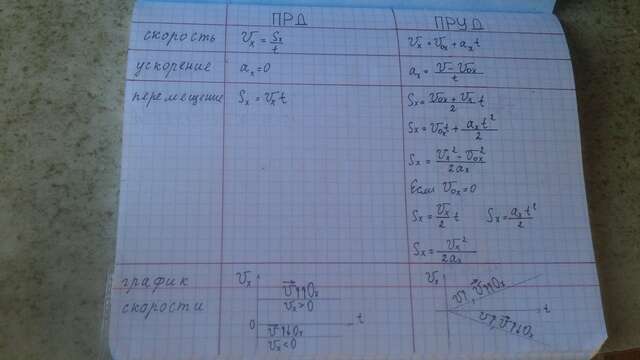 ПРД ПРУД
скорость Vₓ = Sₓ/t Vₓ = V₀ₓ + aₓt
ускорение aₓ = 0 aₓ = (V - V₀ₓ)/t
перемещение Sₓ = Vₓt Sₓ = (V₀ₓ + Vₓ)/2 t
Sₓ = V₀ₓt + aₓt²/2
Sₓ = (Vₓ² - V₀ₓ²)/2aₓ
Если V₀ₓ = 0
Sₓ = Vₓ/2 t Sₓ = aₓt²/2
Sₓ = Vₓ²/2aₓ
график Vₓ V⃗↑↑Oₓ Vₓ V↑, V⃗↑↑Oₓ
скорости Vₓ > 0
0 t t
V⃗↑↓Oₓ V↑, V⃗↑↓Oₓ
Vₓ < 0